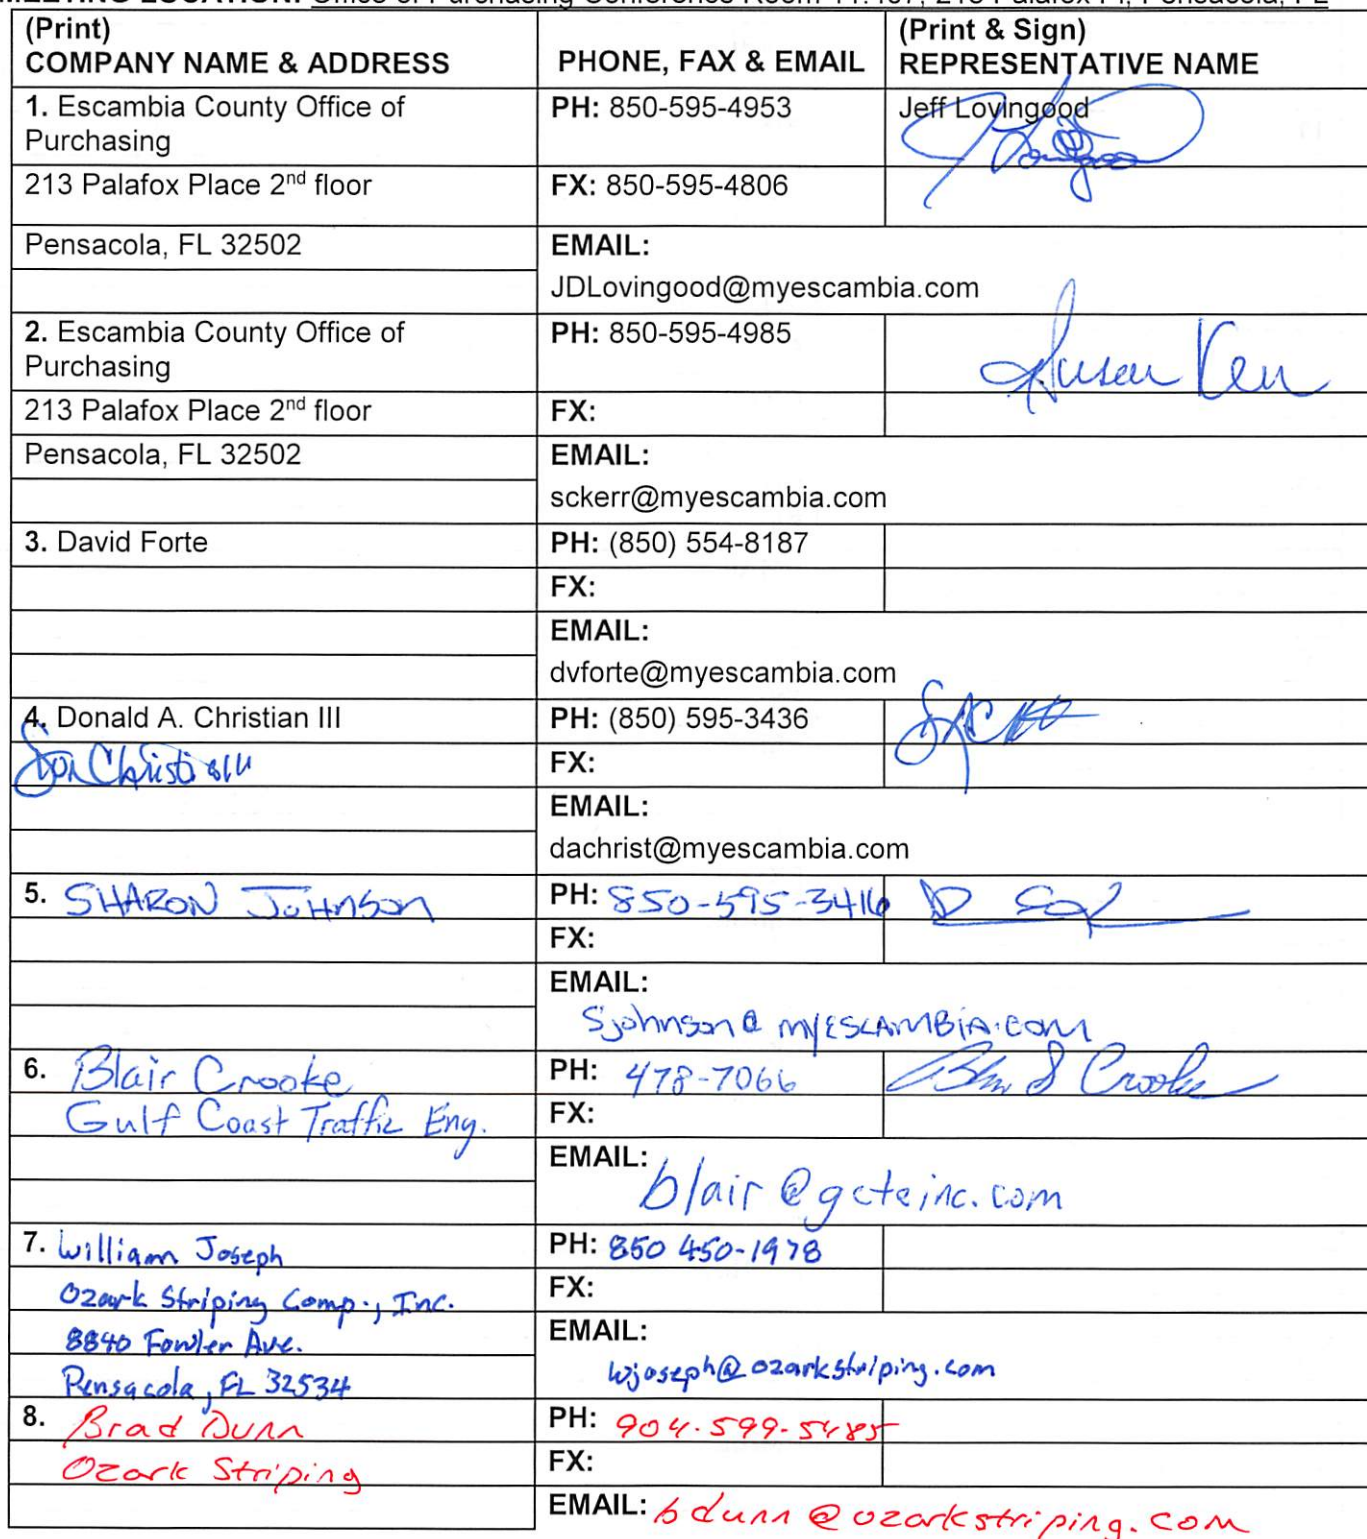 MEETING LOCATION: Office of Purchasing Conference Room 11.407, 213 Palafox Pl, Pensacola, FL
(Print)
COMPANY NAME & ADDRESS
PHONE, FAX & EMAIL
(Print & Sign)
REPRESENTATIVE NAME
1. Escambia County Office of
Purchasing
PH: 850-595-4953
Jeff Lovingood
213 Palafox Place 2nd floor
FX: 850-595-4806
Pensacola, FL 32502
EMAIL:
JDLovingood@myescambia.com
2. Escambia County Office of
Purchasing
PH: 850-595-4985
213 Palafox Place 2nd floor
FX:
Pensacola, FL 32502
EMAIL:
sckerr@myescambia.com
3. David Forte
PH: (850) 554-8187
FX:
EMAIL:
dvforte@myescambia.com
4. Donald A. Christian III
PH: (850) 595-3436
Don Christian III
FX:
EMAIL:
dachrist@myescambia.com
5. SHARON JOHNSON
PH: 850-595-3416
FX:
EMAIL:
Sjohnson@myESCAMBIA.com
6. Blair Crooke
PH: 478-7066
Gulf Coast Traffic Eng.
FX:
EMAIL:
blair@gcteinc.com
7. William Joseph
PH: 850 450-1978
Ozark Striping Comp., Inc.
FX:
8840 Fowler Ave.
EMAIL:
Pensacola, FL 32534
wjoseph@ozarkstriping.com
8. Brad Dunn
PH: 904.599-5485
Ozark Striping
FX:
EMAIL: bdunn@ozarkstriping.com